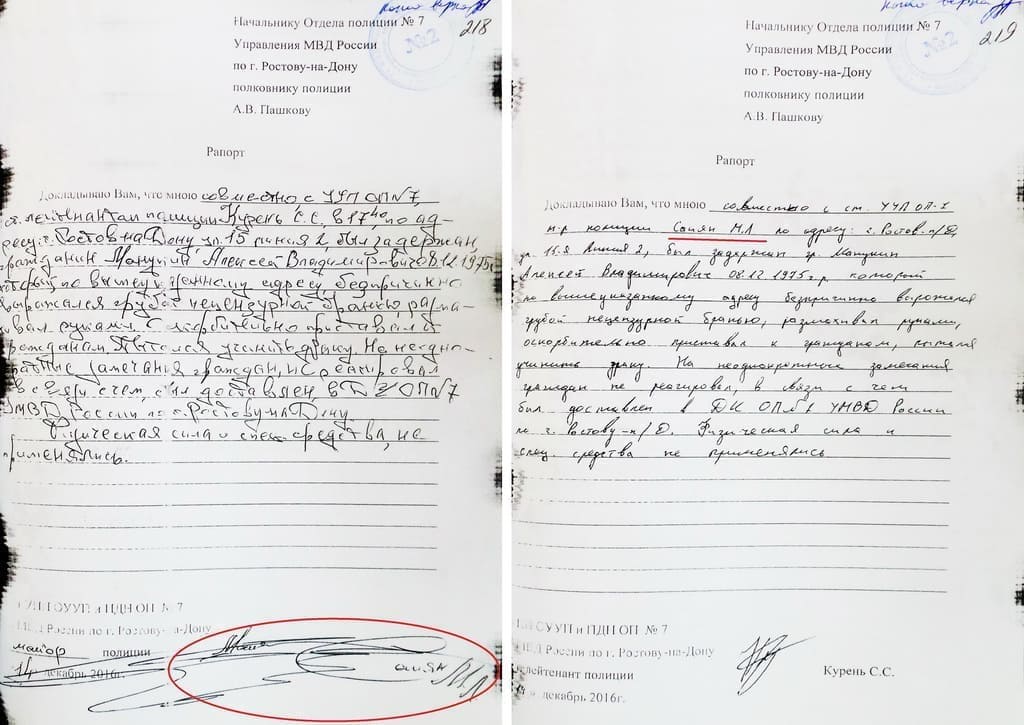 218
Начальнику Отдела полиции № 7
Управления МВД России
по г. Ростову-на-Дону
полковнику полиции
А.В. Пашкову
№2
Рапорт
Докладываю Вам, что мною совместно с УУП ОП№7,
ст. лейтенантам полиции Курень С.С, в 17⁴⁰ по ад-
ресу: г. Ростов на Дону, ул. 15 линия 2, был задержан
гражданин Манукин Алексей Владимирович 08.12.1975г
который по вышеуказанному адресу, беспричинно
выражался грубой нецензурной бранью, разма-
хивал руками. Оскорбительно приставал к
гражданам, пытался учинить драку. На неодно-
кратные замечания граждан, не реагировал
в связи с чем, был доставлен в ОП№7
УМВД России по г. Ростову на Дону.
Физическая сила и спец. средства, не
применялись.
ОУУП и ПДН ОП № 7
МВД России по г. Ростову-на-Дону
майор полиции
14 декабрь 2016г.
219
Начальнику Отдела полиции № 7
Управления МВД России
по г. Ростову-на-Дону
полковнику полиции
А.В. Пашкову
№2
Рапорт
Докладываю Вам, что мною совместно с ст. УУП ОП-7
м-р полиции Соиян М.Л по адресу: г. Ростов-н/Д,
ул. 15-я Линия 2, был задержан гр. Манукин
Алексей Владимирович 08.12.1975г.р. который
по вышеуказанному адресу беспричинно выражался
грубой нецензурной бранью, размахивал руками,
оскорбительно приставал к гражданам, пытался
учинить драку. На неоднократные замечания
граждан не реагировал, в связи с чем
был доставлен в УМВД России
по г. Ростову-н/Д. Физическая сила и
спец. средства не применялись
ОУУП и ПДН ОП № 7
МВД России по г. Ростову-на-Дону
лейтенант полиции
Курень С.С.
декабрь 2016г.